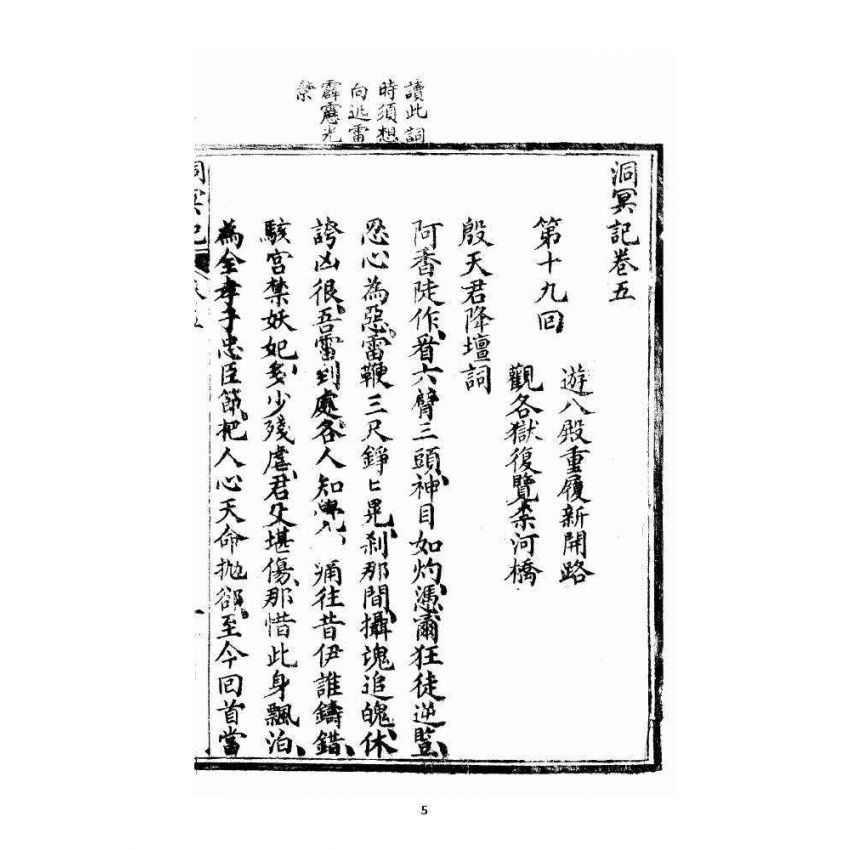 讀此詞
時須想
向迅雷
霹靂光
洞冥記卷五
第十九回
遊八殿重履新開路
觀各獄復覽柰河橋
殷天君降壇詞
阿香陡作、看六臂三頭、神目如灼、憑爾狂徒逆豎、
忍心為惡、雷鞭三尺錚匕晃、刹那間、攝魂追魄、休
誇凶很、吾雷到處、各人知 痛往昔伊誰鑄錯、
駭宮禁妖妃、多少殘虐、君父堪傷、那惜此身飄泊、
為全孝子忠臣節、把人心天命拋卻、至今回首當
洞冥記 卷五 一
5